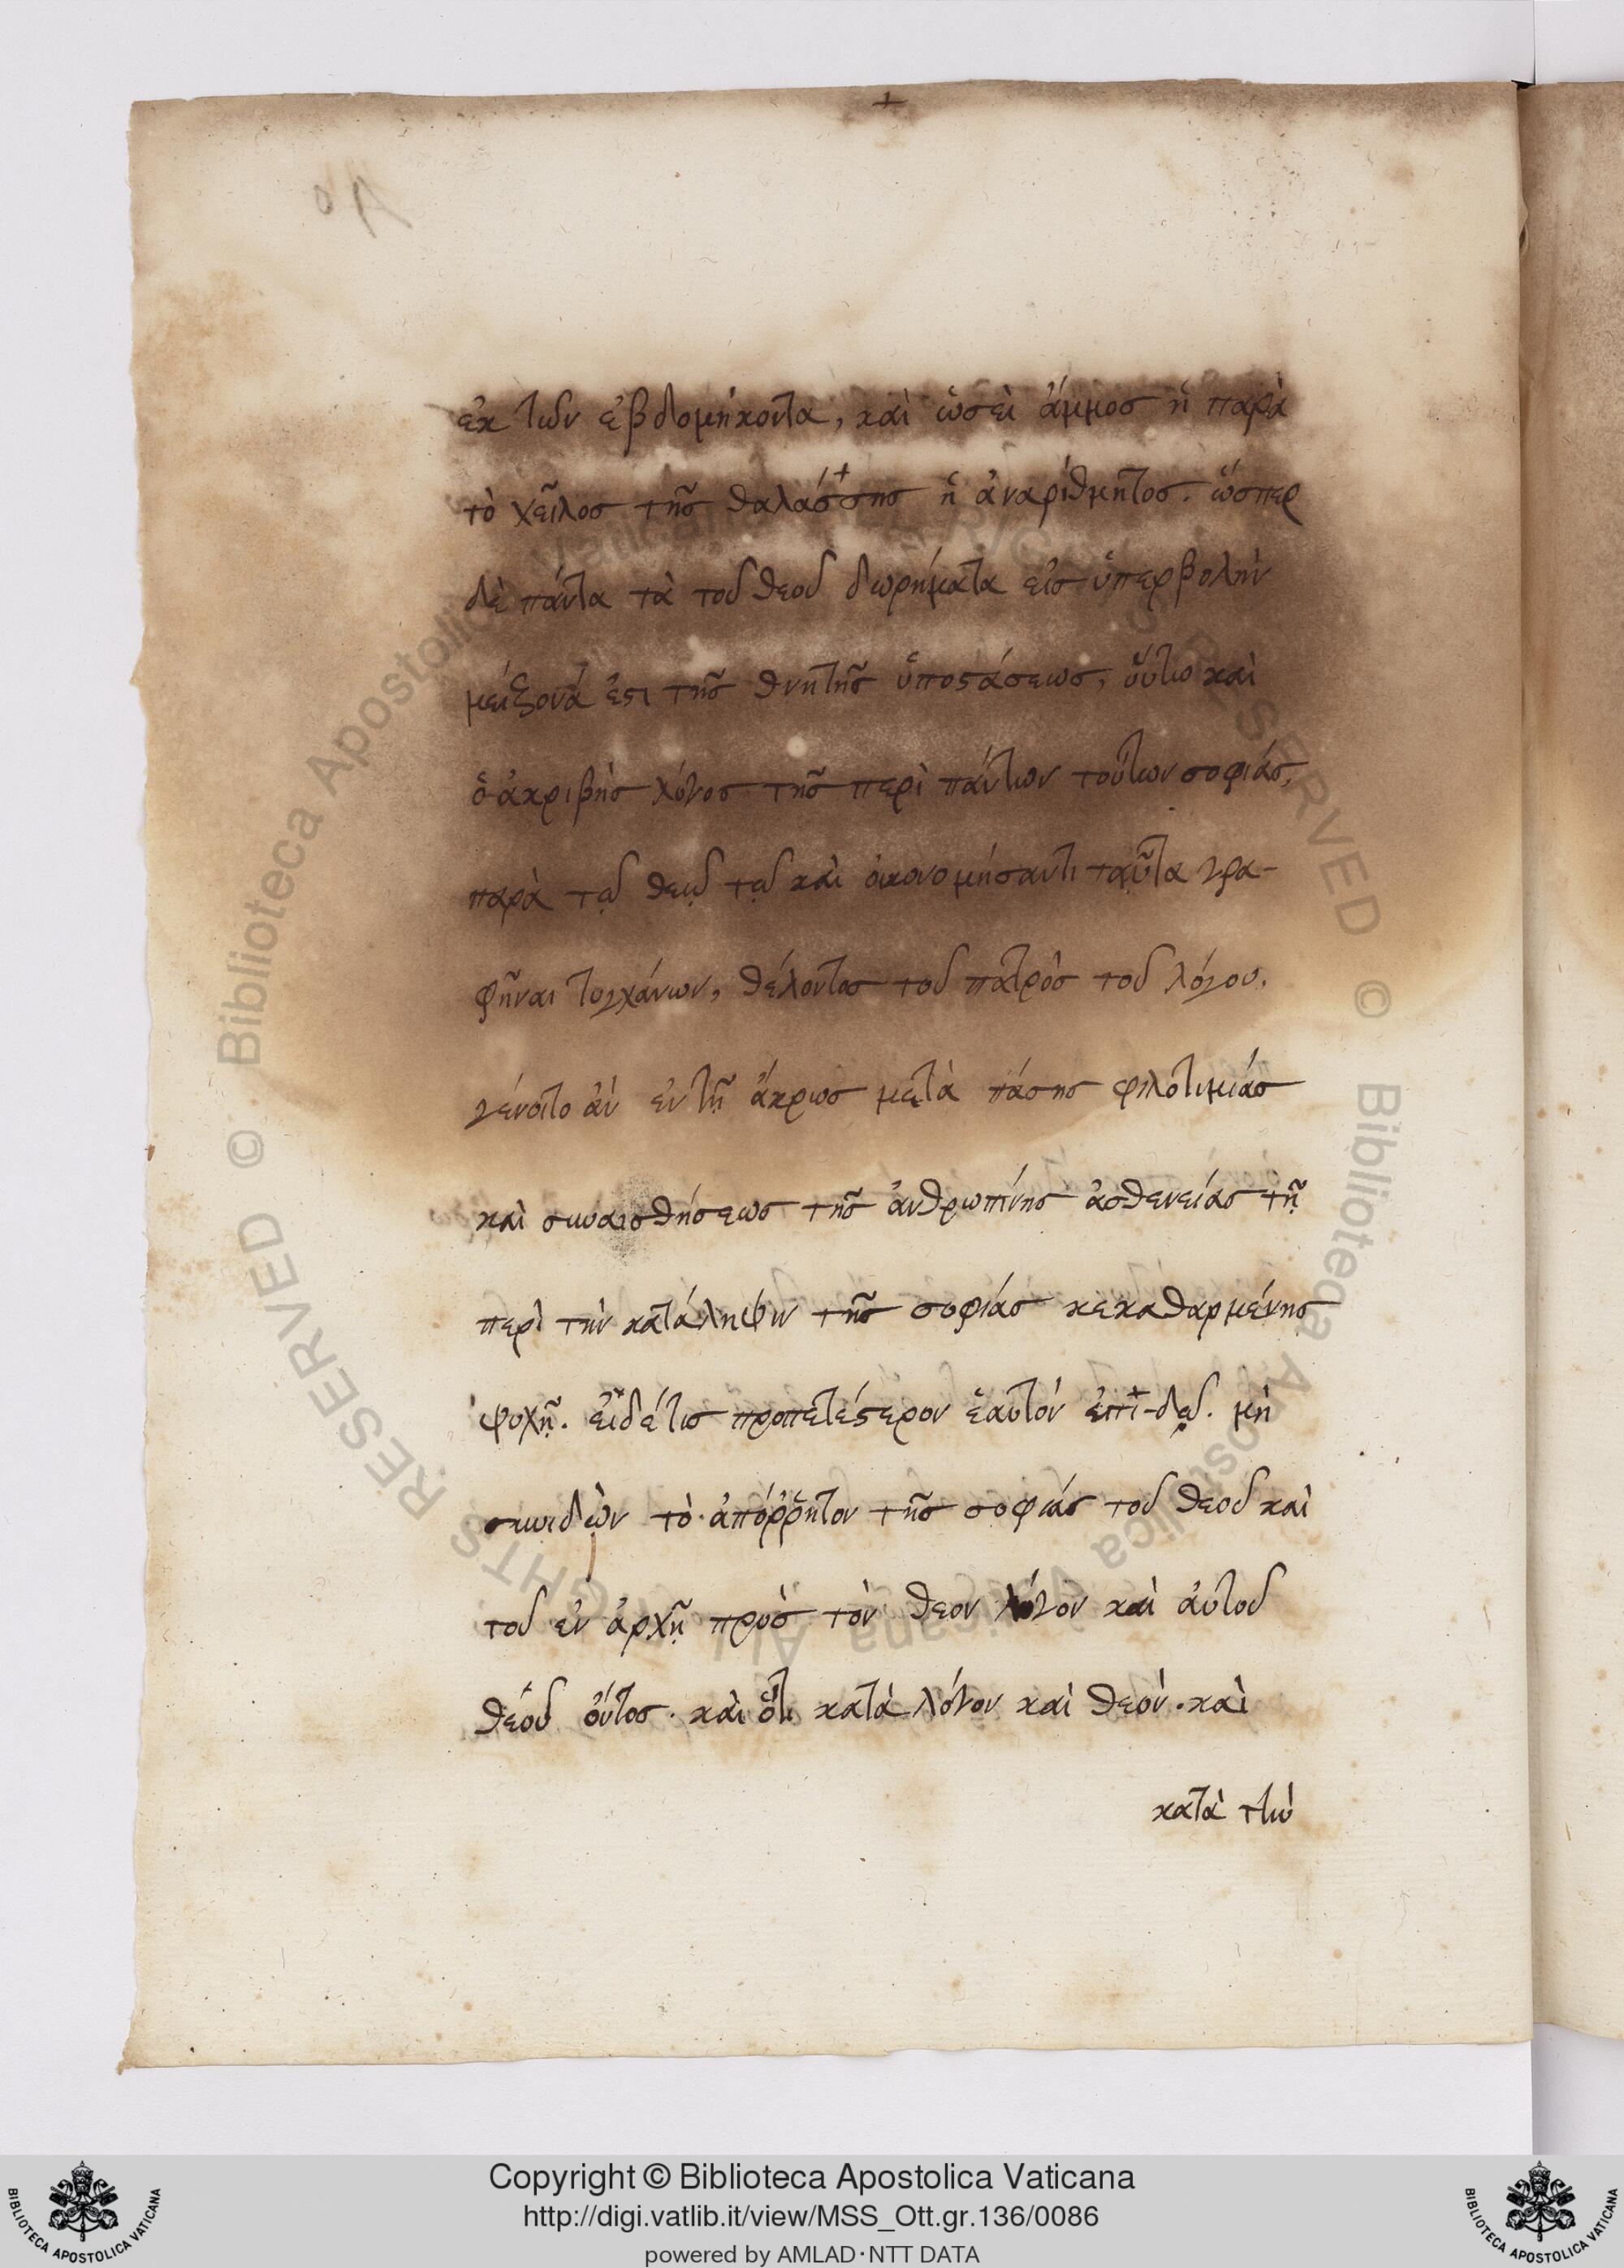 +
ἐκ τῶν ἑβδομήκοντα, καὶ ὡσεὶ ἄμμος ἡ παρὰ
τὸ χεῖλος τῆς θαλάσσης ἡ ἀναρίθμητος. ὥσπερ
δὲ πάντα τὰ τοῦ θεοῦ δωρήματα εἰς ὑπερβολὴν
μείζονά ἐστι τῆς θνητῆς ὑποστάσεως, οὕτω καὶ
ὁ ἀκριβὴς λόγος τῆς περὶ πάντων τούτων σοφίας,
παρὰ τῷ θεῷ τῷ καὶ οἰκονομήσαντι ταῦτα γρα-
φῆναι τυγχάνων, θέλοντος τοῦ πατρὸς τοῦ λόγου,
γένοιτο ἂν ἐν τῇ ἄκρως μετὰ πάσης φιλοτιμίας
καὶ συναισθήσεως τῆς ἀνθρωπίνης ἀσθενείας τῆ
περὶ τὴν κατάληψιν τῆς σοφίας κεκαθαρμένης
ψυχῇ. εἰ δέ τις προπετέστερον ἑαυτὸν ἐπι-δῷ. μὴ
συνιδὼν τὸ ἀπόῤῥητον τῆς σοφίας τοῦ θεοῦ καὶ
τοῦ ἐν ἀρχῇ πρὸς τὸν θεον λόγον καὶ αὐτοῦ
θεοῦ ὄντος. καὶ ὅτι κατὰ λόγον καὶ θεόν. καὶ
κατὰ τὴν
© Biblioteca Apostolica Vaticana ALL RIGHTS RESERVED
Copyright © Biblioteca Apostolica Vaticana
http://digi.vatlib.it/view/MSS_Ott.gr.136/0086
powered by AMLAD·NTT DATA
BIBLIOTECA APOSTOLICA VATICANA
BIBLIOTECA APOSTOLICA VATICANA